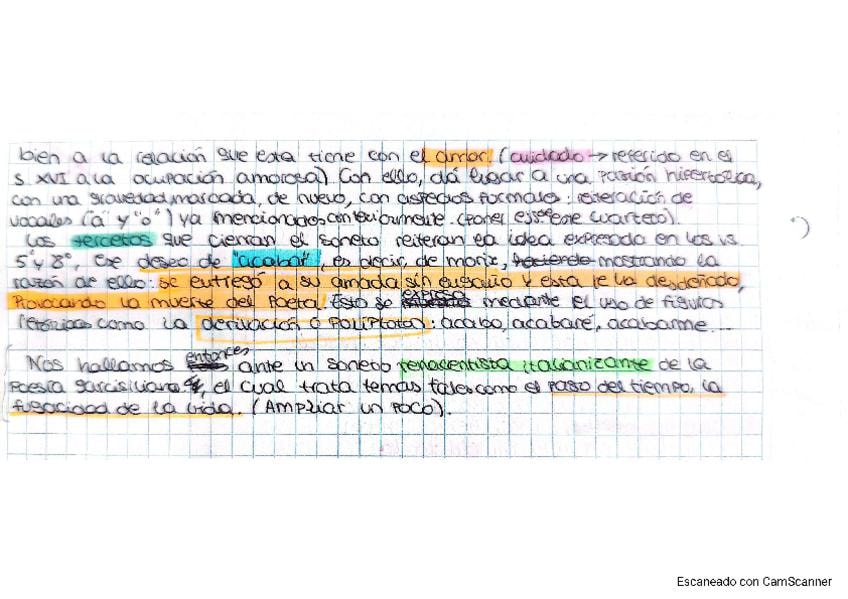 bien a la relación que esta tiene con el amor (cuidado → referido en el
s. XVI a la ocupación amorosa). Con ello, dá lugar a una pasión hiperbólica,
con una gravedad marcada, de nuevo, con aspectos formales: reiteración de
vocales ("a" y "o") ya mencionados con texturmente. (Poner ess este cuarteto).
Los tercetos que cierran el soneto reiteran la idea expresada en los vs.
5º y 8º. Ese deseo de "acabar", es decir, de morir, haciendo mostrando la
razón de ello: se entregó a su amada sin engaño y esta le ha desdeñado,
provocando la muerte del poeta. Esto se expresa mediante el uso de figuras
retóricas como la derivación o Políptoton: acabo, acabaré, acabarme...
Nos hallamos entonces ante un soneto renacentista italianizante de la
poesía garcisiliana, el cual trata temas tales como el paso del tiempo, la
fugacidad de la vida. (Ampliar un poco).
Escaneado con CamScanner